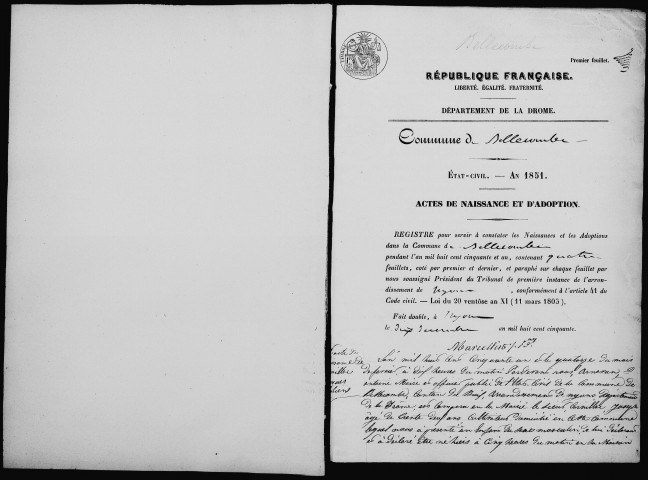 Bellecombe
Premier feuillet.
RÉPUBLIQUE FRANÇAISE.
LIBERTÉ, ÉGALITÉ, FRATERNITÉ.
DÉPARTEMENT DE LA DROME.
Commune de Bellecombe
ÉTAT-CIVIL. — AN 1851.
ACTES DE NAISSANCE ET D'ADOPTION.
REGISTRE pour servir à constater les Naissances et les Adoptions
dans la Commune de Bellecombe
pendant l'an mil huit cent cinquante et un, contenant quatre
feuillets, coté par premier et dernier, et paraphé sur chaque feuillet par
nous soussigné Président du Tribunal de première instance de l'arron-
dissement de Nyons, conformément à l'article 41 du
Code civil. — Loi du 20 ventôse an XI (11 mars 1803).
Fait double, à Nyons
le dix décembre en mil huit cent cinquante.
L'an mil huit cent cinquante un et le quatorze du mois
de février à dix heures du matin Pardevant nous
Maire et officier public de l'état civil de la Commune de
Bellecombe, Canton du Buis, arrondissement de Nyons département
de la Drome, est comparu en la Mairie le sieur Joseph
âgé de trente deux ans cultivateur domicilié en cette commune
lequel nous a présenté un Enfant du sexe masculin de lui déclarant
et a déclaré être né à cinq heures du matin en sa Maison